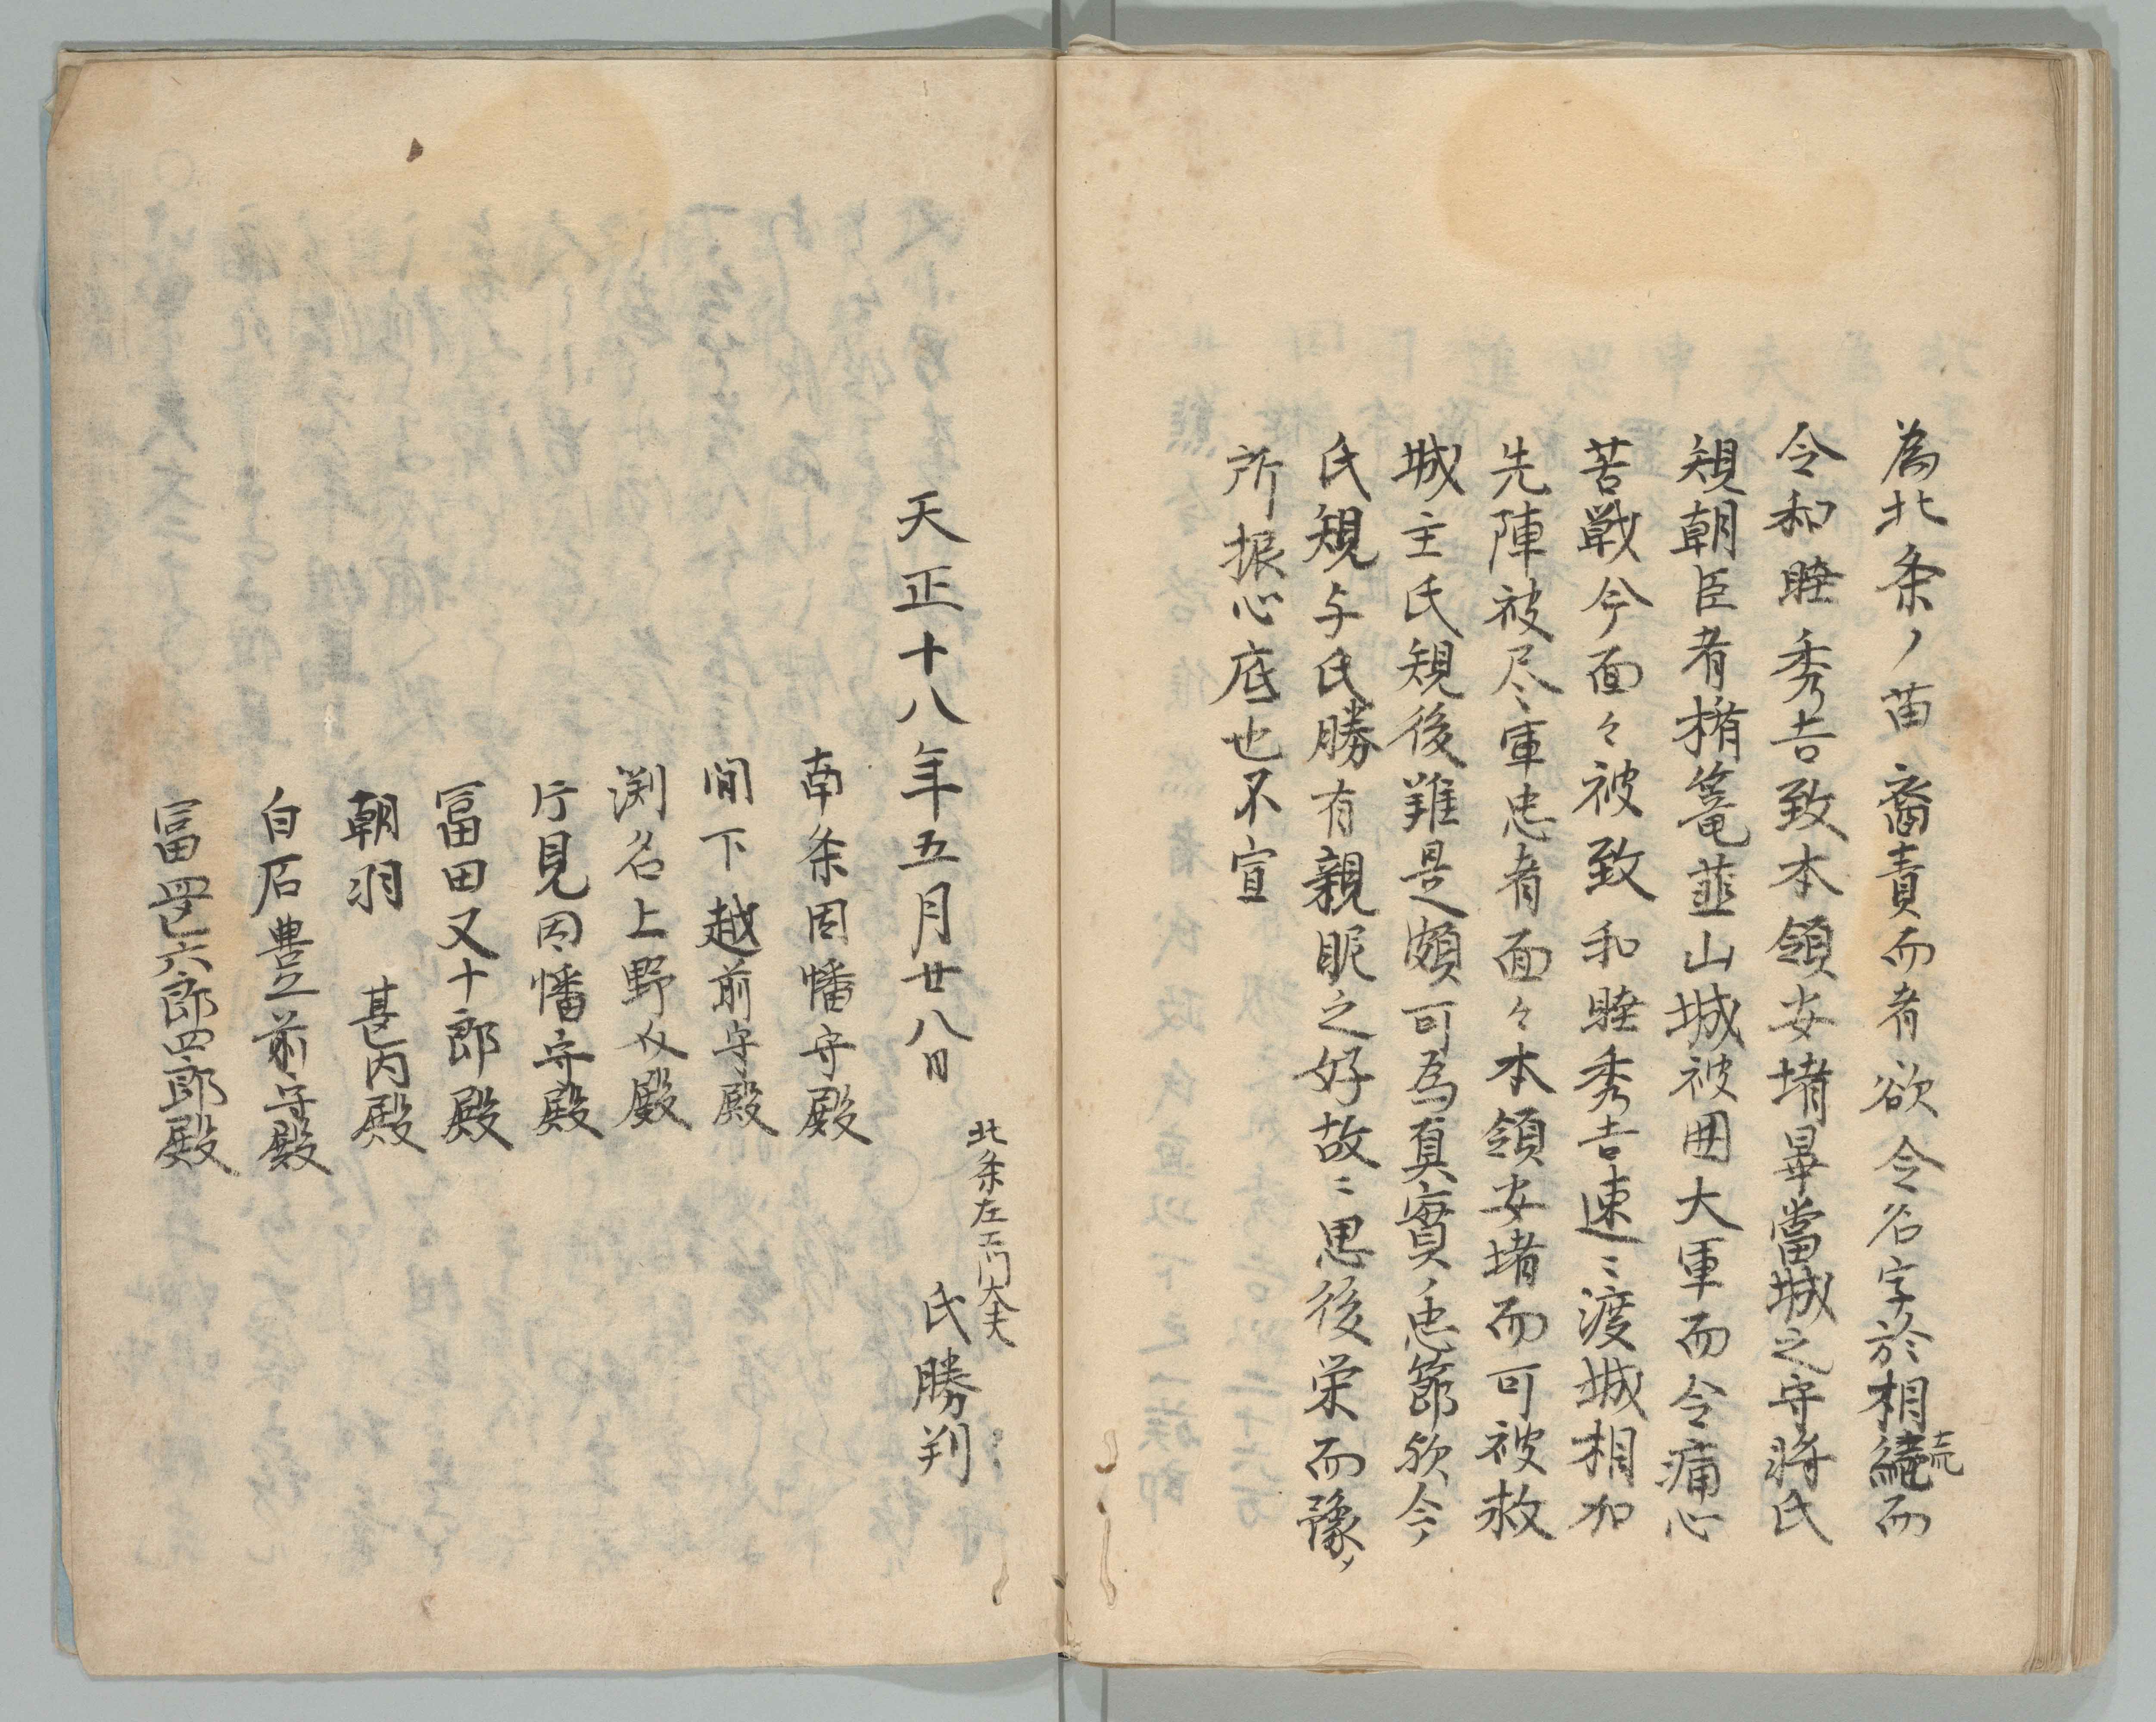 為北条ノ苗裔責而者欲令名字於相続而
売
令和睦秀吉致本領安堵畢當城之守将氏
規朝臣者楯篭韮山城被囲大軍而令痛心
苦戦今面々被致和睦秀吉速ニ渡城相加
先陣被尽軍忠者面々本領安堵而可被救
城主氏規後難是頗可為真實ノ忠節欤今
氏規与氏勝有親眤之好故ニ思後栄而豫
所振心底也不宣
天正十八年五月廿八日
北条左エ門大夫
氏勝判
南条因幡守殿
間下越前守殿
渕名上野介殿
片見因幡守殿
冨田又十郎殿
朝羽 甚内殿
白石豊前守殿
冨田六郎四郎殿